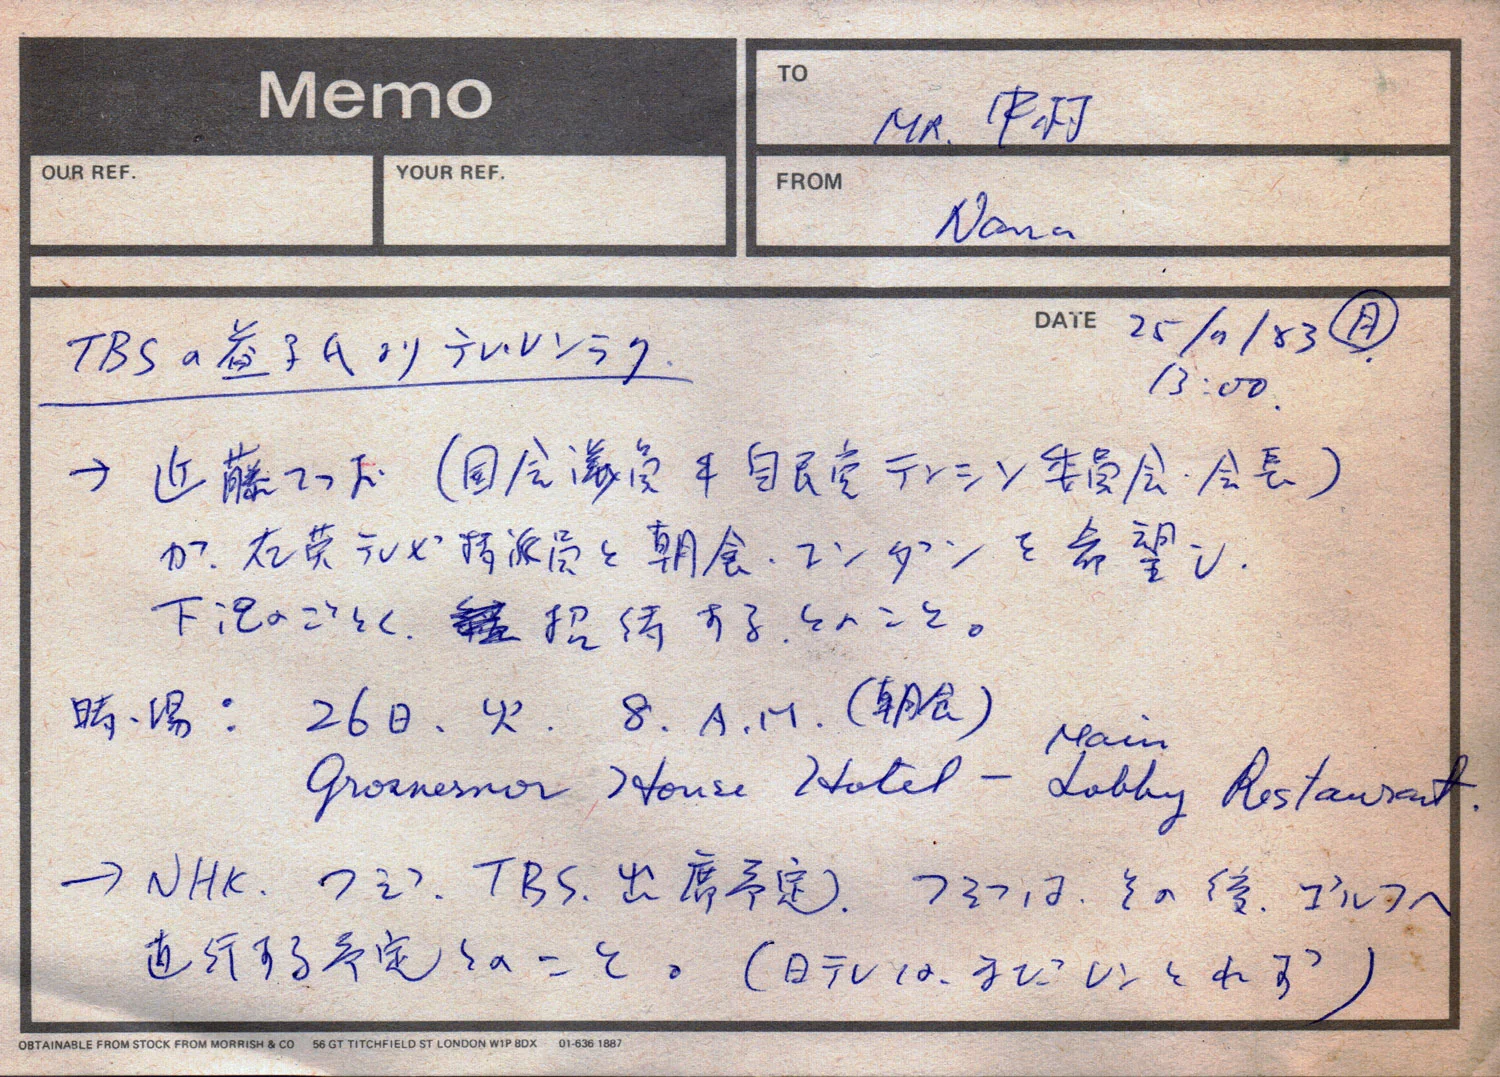 Memo
OUR REF.
YOUR REF.
TO
MR. 中村
FROM
Nana
DATE 25/ /83 (月)
13:00.
TBSの益子氏よりテレ・レンラク.
→ 近藤てつお (国会議員 自民党 テンシン委員会・会長)
が、在英テレビ特派員と朝食・コンダンを希望し、
下記のごとく、招待する、とのこと。
時・場: 26日、火. 8. A.M. (朝食)
Main
Grosvernor House Hotel – Lobby Restaurant.
→ NHK. フジ. TBS. 出席予定. フジは、その後、ゴルフへ
直行する予定とのこと。(日テレは、まだレンとれず)
OBTAINABLE FROM STOCK FROM MORRISH & CO 56 GT TITCHFIELD ST LONDON W1P 8DX 01-636 1887